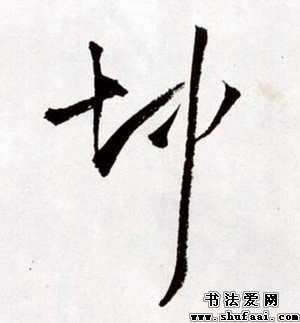 坤
书法爱网
www.shufaai.com